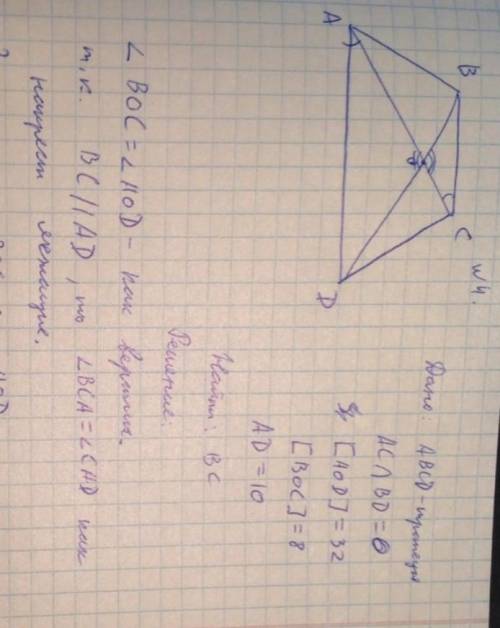 №4.
A
B
C
D
Дано: ABCD-трапеция
AC∩BD=O
[AOD]=32
[BOC]=8
AD=10
Найти: BC
Решение:
∠BOC=∠AOD- как вертик.
т.к. BC//AD, то ∠BCA=∠CAD как
накрест лежащие.